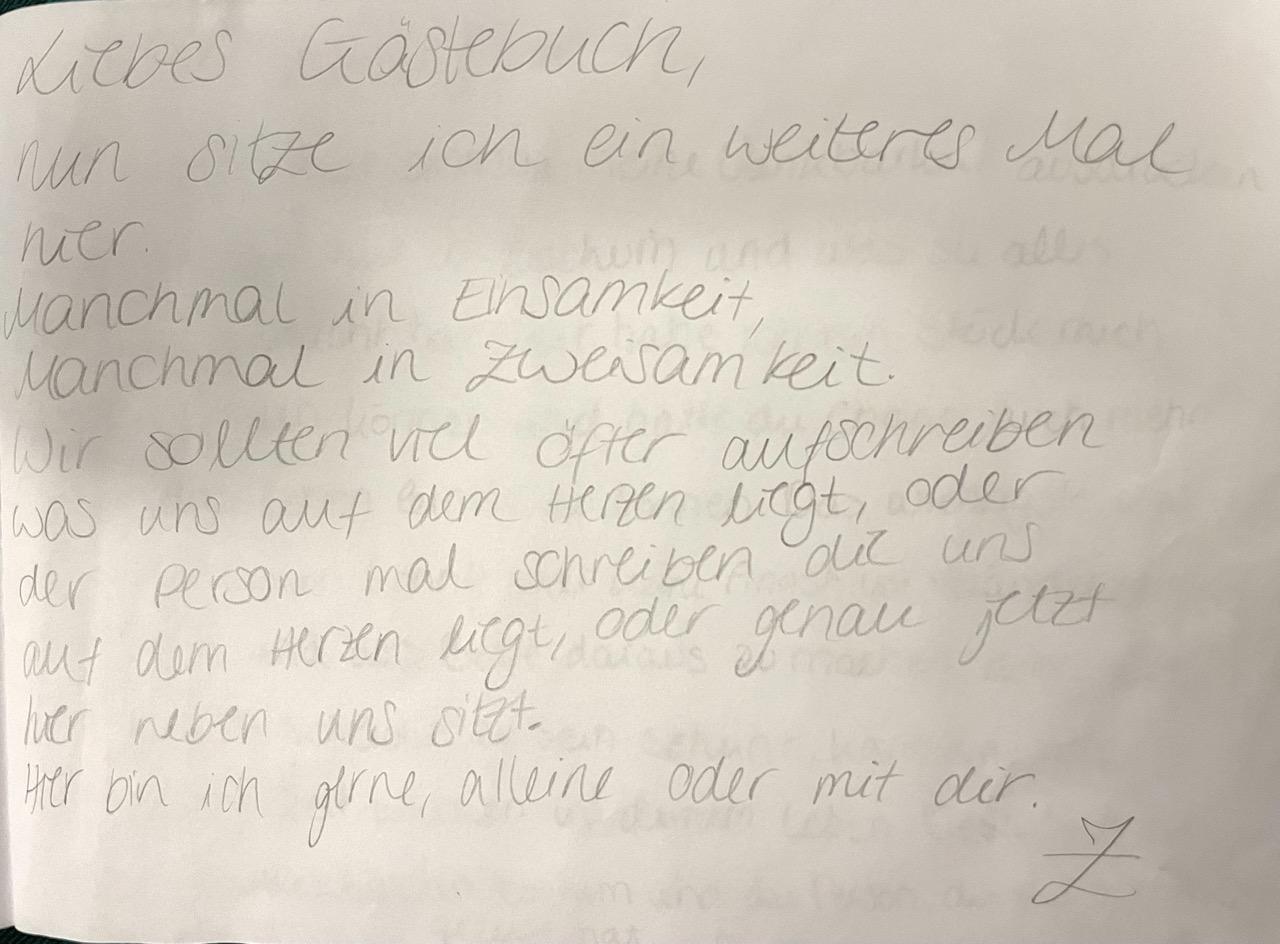 Liebes Gästebuch,
nun sitze ich ein weiteres Mal
hier.
Manchmal in Einsamkeit,
Manchmal in Zweisamkeit.
Wir sollten viel öfter aufschreiben
was uns auf dem Herzen liegt, oder
der Person mal schreiben die uns
auf dem Herzen liegt, oder genau jetzt
hier neben uns sitzt.
Hier bin ich gerne, alleine oder mit dir.
Z